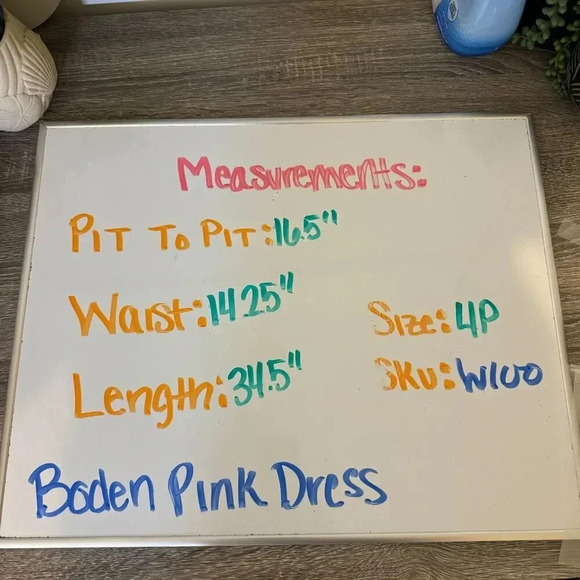 Measurements:
Pit To Pit: 16.5"
Waist: 14 25"
Length: 34.5"
Size: 4P
SKU: W100
Boden Pink Dress